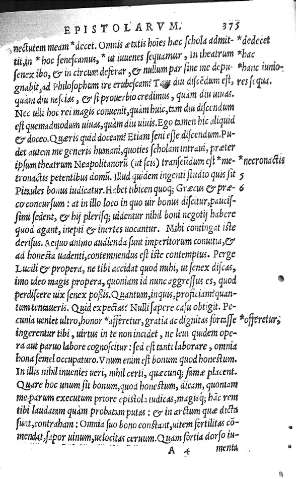 EPISTOLARVM. 373
nectutem meam *decet. Omnis ætatis hoies hæc schola admit- *dedecet
tit, in *hoc senescamus, *ut iuuenes sequamur, in theatrum *hac
senex ibo, & in circum deferar, & nullum par sine me depu- *hanc iunio-
gnabit, ad Philosophum ire erubescam? Tam diu discēdum est, res sequi.
quam diu nescias, & si prouerbio credimus, quam diu uiuas.
Nec ulli hoc rei magis conuenit, quàm huic, tam diu discendum
est quemadmodum uiuas, quàm diu uiuis. Ego tamen hic aliquid
& doceo. Quæris quid doceam? Etiam seni esse discendum. Pu-
det autem me generis humani, quoties scholam intraui, præter
ipsum theatrum Neapolitanorū (ut scis) transeūdum est *me- *necronactis
tronactis petentibus domū. Illud quidem ingenti studio quis sit 5
Pitaules bonus iudicatur. Habet tibicen quoq; Græcus & præ- 6
co concursum: at in illo loco in quo uir bonus discitur, paucis-
simi sedent, & hij plerisq; uidentur nihil boni negotij habere
quod agant, inepti & inertes uocantur. Mihi contingat iste
derisus. Aequo animo audienda sunt imperitorum conuitia, &
ad honesta uadenti, contemnendus est iste contemptus. Perge
Lucili & propera, ne tibi accidat quod mihi, ut senex discas,
imo ideo magis propera, quoniam id nunc aggressus es, quod
perdiscere uix senex possis. Quantum, inquis, proficiam? quan-
tum tentaueris. Quid expectas? Nulli sapere casu obtigit. Pe-
cunia ueniet ultro, honor *offeretur, gratia ac dignitas forsasse *afferetur,
ingerentur tibi, uirtus in te non incidet, ne leui quidem ope-
ra aut paruo labore cognoscitur: sed est tanti laborare, omnia
bona semel occupaturo. Vnum enim est bonum quod honestum.
In illis nihil inuenies ueri, nihil certi, quæcunq; famæ placent.
Quare hoc unum sit bonum, quod honestum, dicam, quoniam
me parum executum priore epistola iudicas, magisq; hāc rem
tibi laudatam quàm probatam putas: & in arctum quæ dicta
sunt, contraham: Omnia suo bono constant, uitem fertilitas cō-
mendat, sapor uinum, uelocitas ceruum. Quàm fortia dorso iu-
A 4 menta